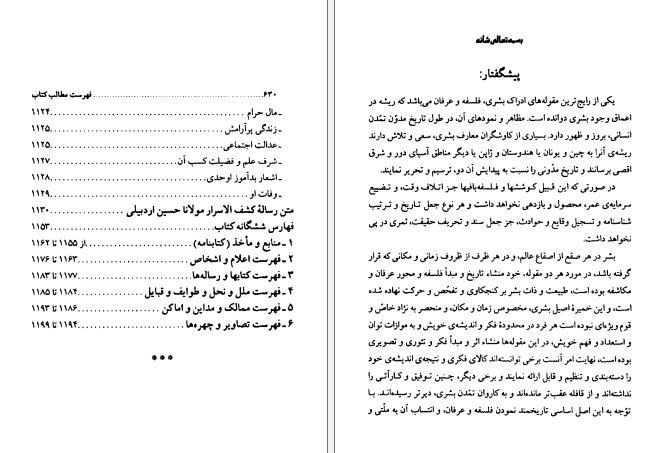 بسمه تعالی شانه
پیشگفتار:
یکی از رایج‌ترین مقوله‌های ادراک بشری، فلسفه و عرفان می‌باشد که ریشه در
اعماق وجود بشری دوانده است. مظاهر و نمودهای آن، در طول تاریخ مدوّن تمدّن
انسانی، بروز و ظهور دارد. بسیاری از کاوشگران معارف بشری، سعی و تلاش دارند
ریشه‌ی آنرا به چین و یونان یا هندوستان و ژاپن یا دیگر مناطق آسیای دور و شرق
اقصی برسانند و تاریخ مدّونی را نسبت به پیدایش آن دو، ترسیم و تحریر نمایند.
در صورتی که این قبیل کوششها و فلسفه‌بافیها جز اتلاف وقت، و تضییع
سرمایه‌ی عمر، محصول و بازدهی نخواهد داشت و هر نوع جعل تاریخ و ترتیب
شناسنامه و تسجیل وقایع و حوادث، جز جعل سند و تحریف حقیقت، ثمری در پی
نخواهد داشت.
بشر در هر صقع از اصقاع عالم، و در هر ظرف از ظروف زمانی و مکانی که قرار
گرفته باشد، در مورد هر دو مقوله، خود منشاء تاریخ و مبدأ فلسفه و محور عرفان و
مکاشفه بوده است، طبیعت و ذات بشر بر کنجکاوی و تفحّص و حرکت نهاده شده
است، و این خمیرهٔ اصیل بشری، مخصوص زمان و مکان، و منحصر به نژاد خاصّ و
قوم ویژه‌ای نبوده است هر فرد در محدودهٔ فکر و اندیشه‌ی خویش و به موازات توان
و استعداد و فهم خویش، در این مقوله‌ها منشاء اثر و مبدأ فکر و تئوری و تصویری
بوده است، نهایت امر آنست برخی توانسته‌اند کالای فکری و نتیجه‌ی اندیشه‌ی خود
را دسته‌بندی و تنظیم و قابل ارائه نمایند و برخی دیگر، چنین توفیق و کارآئی را
نداشته‌اند و از قافله عقب‌تر مانده‌اند و به کاروان تمدّن بشری، دیرتر رسیده‌اند. با
توّجه به این اصل اساسی تاریخمند نمودن فلسفه و عرفان، و انتساب آن به ملّتی و
۶۳۰ ........ فهرست مطالب کتاب
ـ مال حرام ........ ۱۱۲۴
ـ زندگی پرآرامش ........ ۱۱۲۵
ـ عدالت اجتماعی ........ ۱۱۲۵
ـ شرف علم و فضیلت کسب آن ........ ۱۱۲۷
ـ اشعار بدآموز اوحدی ........ ۱۱۲۸
ـ وفات او ........ ۱۱۲۹
متن رسالهٔ کشف الاسرار مولانا حسین اردبیلی ........ ۱۱۳۰
فهارس ششگانه کتاب ........ ۱۱۵۳
۱ ـ منابع و مأخذ (کتابنامه) ........ از ۱۱۵۵ تا ۱۱۶۲
۲ ـ فهرست اعلام و اشخاص ........ ۱۱۶۳ تا ۱۱۷۶
۳ ـ فهرست کتابها و رساله‌ها ........ ۱۱۷۷ تا ۱۱۸۳
۴ ـ فهرست ملل و نحل و طوایف و قبایل ........ ۱۱۸۴ تا ۱۱۸۵
۵ ـ فهرست ممالک و مداین و اماکن ........ ۱۱۸۶ تا ۱۱۹۳
۶ ـ فهرست تصاویر و چهره‌ها ........ ۱۱۹۴ تا ۱۱۹۹
***